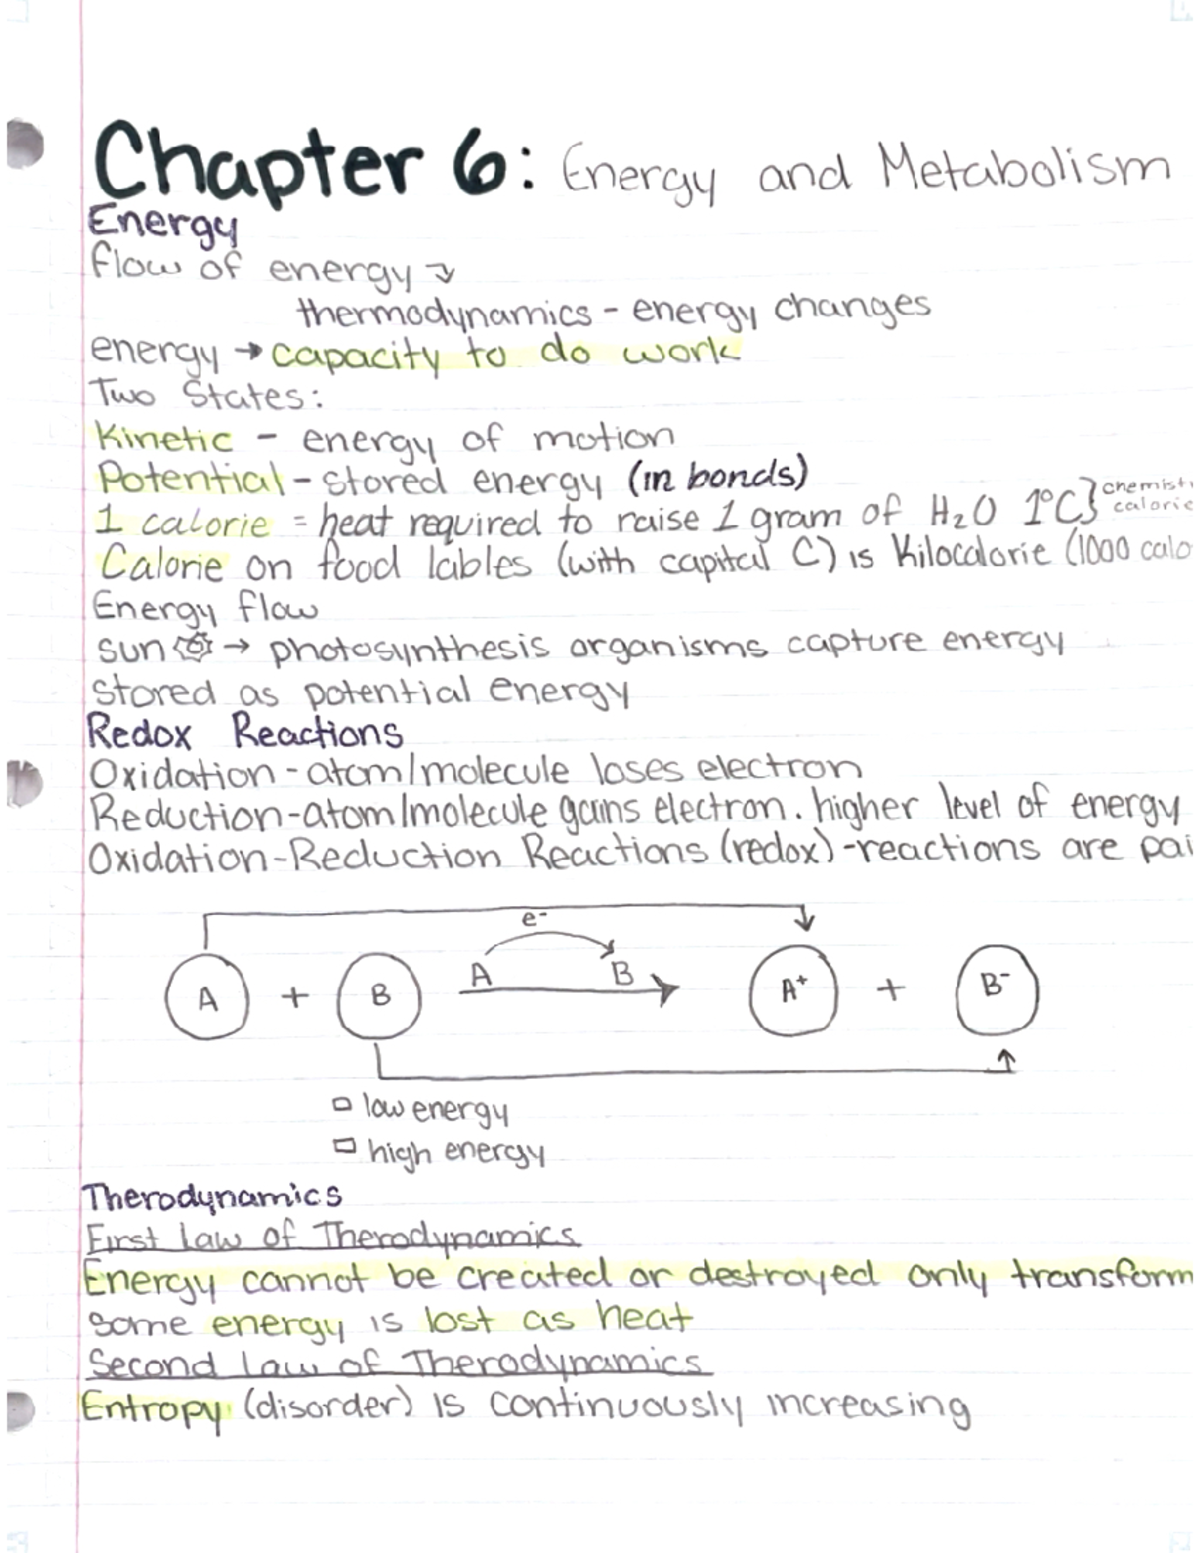 Chapter 6: Energy and Metabolism
Energy
flow of energy ↴
thermodynamics - energy changes
energy → capacity to do work
Two States:
Kinetic - energy of motion
Potential - stored energy (in bonds)
1 calorie = heat required to raise 1 gram of H₂O 1°C} chemist
calorie
Calorie on food lables (with capital C) is Kilocalorie (1000 calo
Energy flow
sun → photosynthesis organisms capture energy
stored as potential energy
Redox Reactions
Oxidation - atom/molecule loses electron
Reduction-atom/molecule gains electron. higher level of energy
Oxidation-Reduction Reactions (redox) - reactions are pai
e⁻
A + B A B → A⁺ + B⁻
low energy
high energy
Therodynamics
First Law of Therodynamics
Energy cannot be created or destroyed only transform
some energy is lost as heat
Second Law of Therodynamics
Entropy (disorder) is continuously increasing